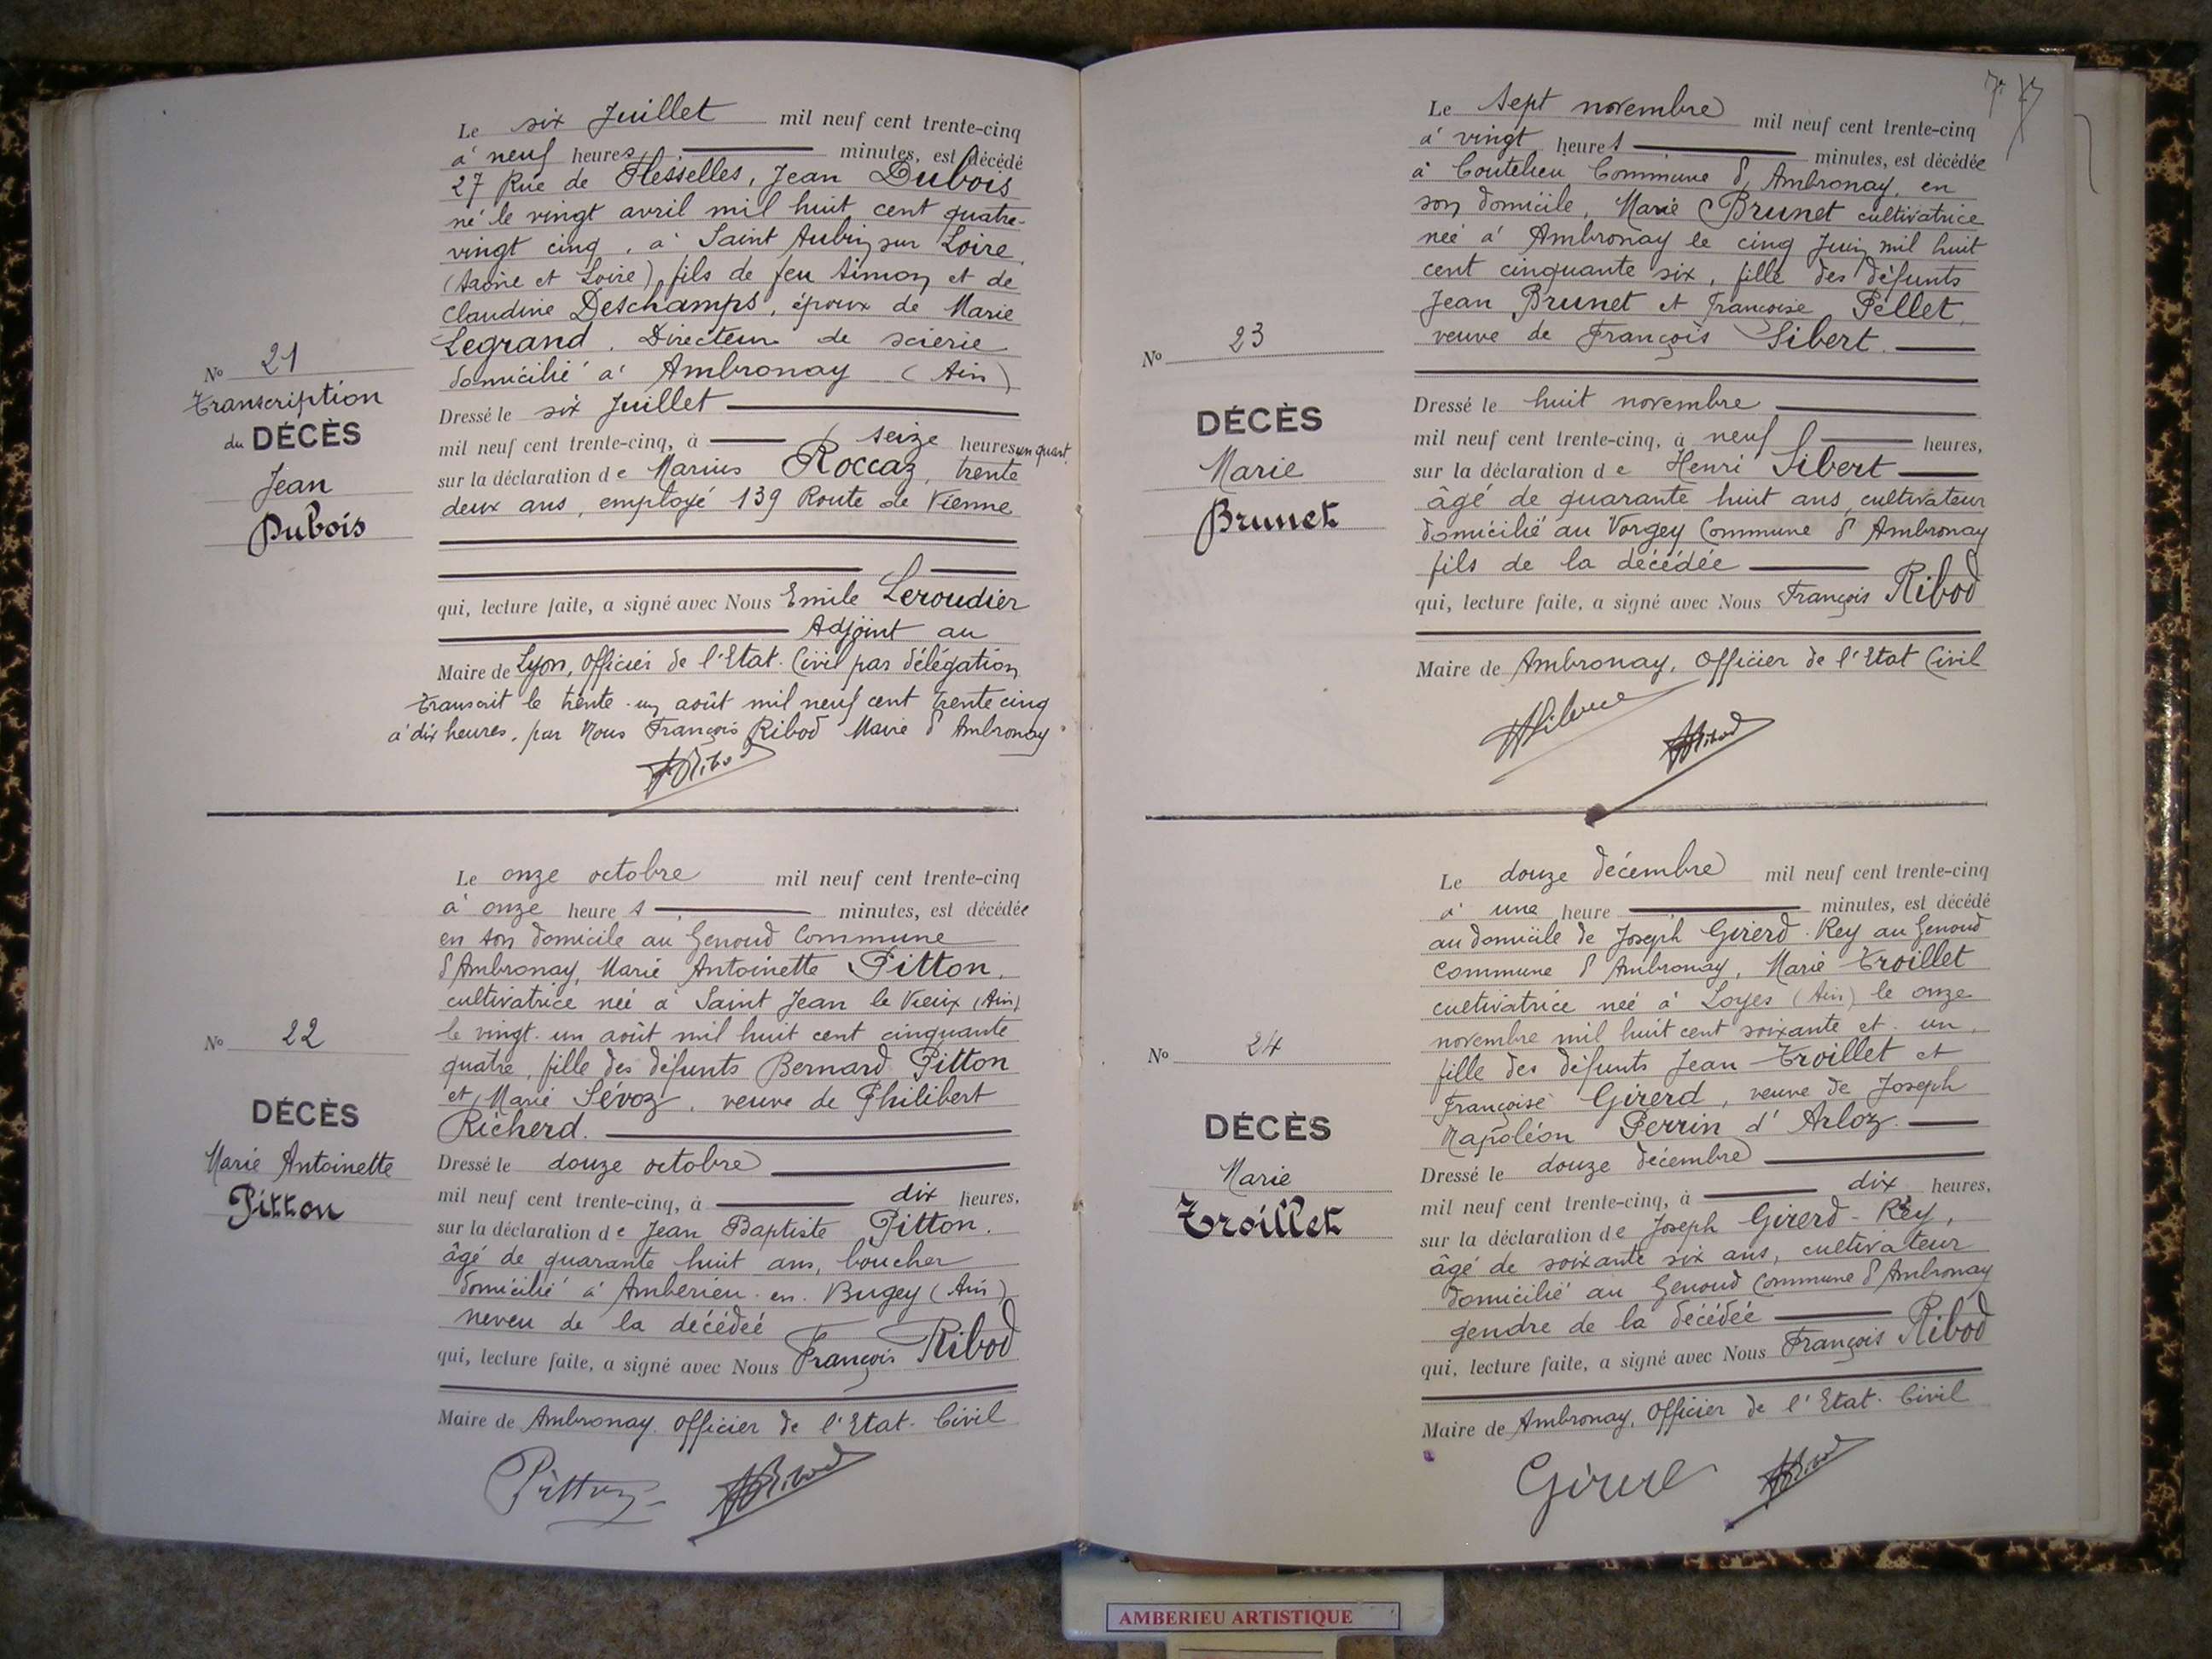 Le six Juillet mil neuf cent trente-cinq
à neuf heures, minutes, est décédé
27 Rue de Flesselles, Jean Dubois
né le vingt avril mil huit cent quatre-
vingt cinq, à Saint Aubin sur Loire,
(Saône et Loire), fils de feu Simon et de
Claudine Deschamps, époux de Marie
Legrand, Directeur de scierie
domicilié à Ambronay (Ain)
No 21
Transcription
du DÉCÈS
Jean
Dubois
Dressé le six Juillet
mil neuf cent trente-cinq, à seize heures un quart
sur la déclaration de Marius Roccaz, trente
deux ans, employé 139 Route de Vienne
qui, lecture faite, a signé avec Nous Emile Leroudier
Adjoint au
Maire de Lyon, Officier de l'Etat-Civil par délégation
Transcrit le trente-un août mil neuf cent trente cinq
à dix heures, par Nous François Ribod Maire d'Ambronay
FRibod
Le onze octobre mil neuf cent trente-cinq
à onze heures, minutes, est décédée
en son domicile au Genoud Commune
d'Ambronay, Marie Antoinette Pitton,
cultivatrice née à Saint Jean le Vieux (Ain)
le vingt-un août mil huit cent cinquante
quatre, fille des défunts Bernard Pitton
et Marie Sévoz, veuve de Philibert
Richerd.
No 22
DÉCÈS
Marie Antoinette
Pitton
Dressé le douze octobre
mil neuf cent trente-cinq, à dix heures,
sur la déclaration de Jean Baptiste Pitton.
âgé de quarante huit ans, boucher
domicilié à Ambérieu-en-Bugey (Ain)
neveu de la décédée
qui, lecture faite, a signé avec Nous François Ribod
Maire de Ambronay. Officier de l'Etat-Civil
Pitton FRibod
Le sept novembre mil neuf cent trente-cinq
à vingt heures, minutes, est décédée
à Coutelieu Commune d'Ambronay, en
son domicile, Marie Brunet cultivatrice
née à Ambronay le cinq Juin mil huit
cent cinquante six, fille des défunts
Jean Brunet et Françoise Pellet,
veuve de François Sibert.
No 23
DÉCÈS
Marie
Brunet
Dressé le huit novembre
mil neuf cent trente-cinq, à neuf heures,
sur la déclaration de Henri Sibert
âgé de quarante huit ans, cultivateur
domicilié au Vorgey Commune d'Ambronay
fils de la décédée
qui, lecture faite, a signé avec Nous François Ribod
Maire de Ambronay, Officier de l'Etat Civil
FRibod
Le douze décembre mil neuf cent trente-cinq
à une heure, minutes, est décédé
au domicile de Joseph Girerd-Rey au Genoud
Commune d'Ambronay, Marie Troillet
cultivatrice née à Loyes (Ain) le onze
novembre mil huit cent soixante et un,
fille des défunts Jean Troillet et
Françoise Girerd, veuve de Joseph
Napoléon Perrin d'Arloz.
No 24
DÉCÈS
Marie
Troillet
Dressé le douze décembre
mil neuf cent trente-cinq, à dix heures,
sur la déclaration de Joseph Girerd-Rey,
âgé de soixante six ans, cultivateur
domicilié au Genoud Commune d'Ambronay
gendre de la décédée
qui, lecture faite, a signé avec Nous François Ribod
Maire de Ambronay, Officier de l'Etat-Civil
Girerd FRibod
AMBERIEU ARTISTIQUE